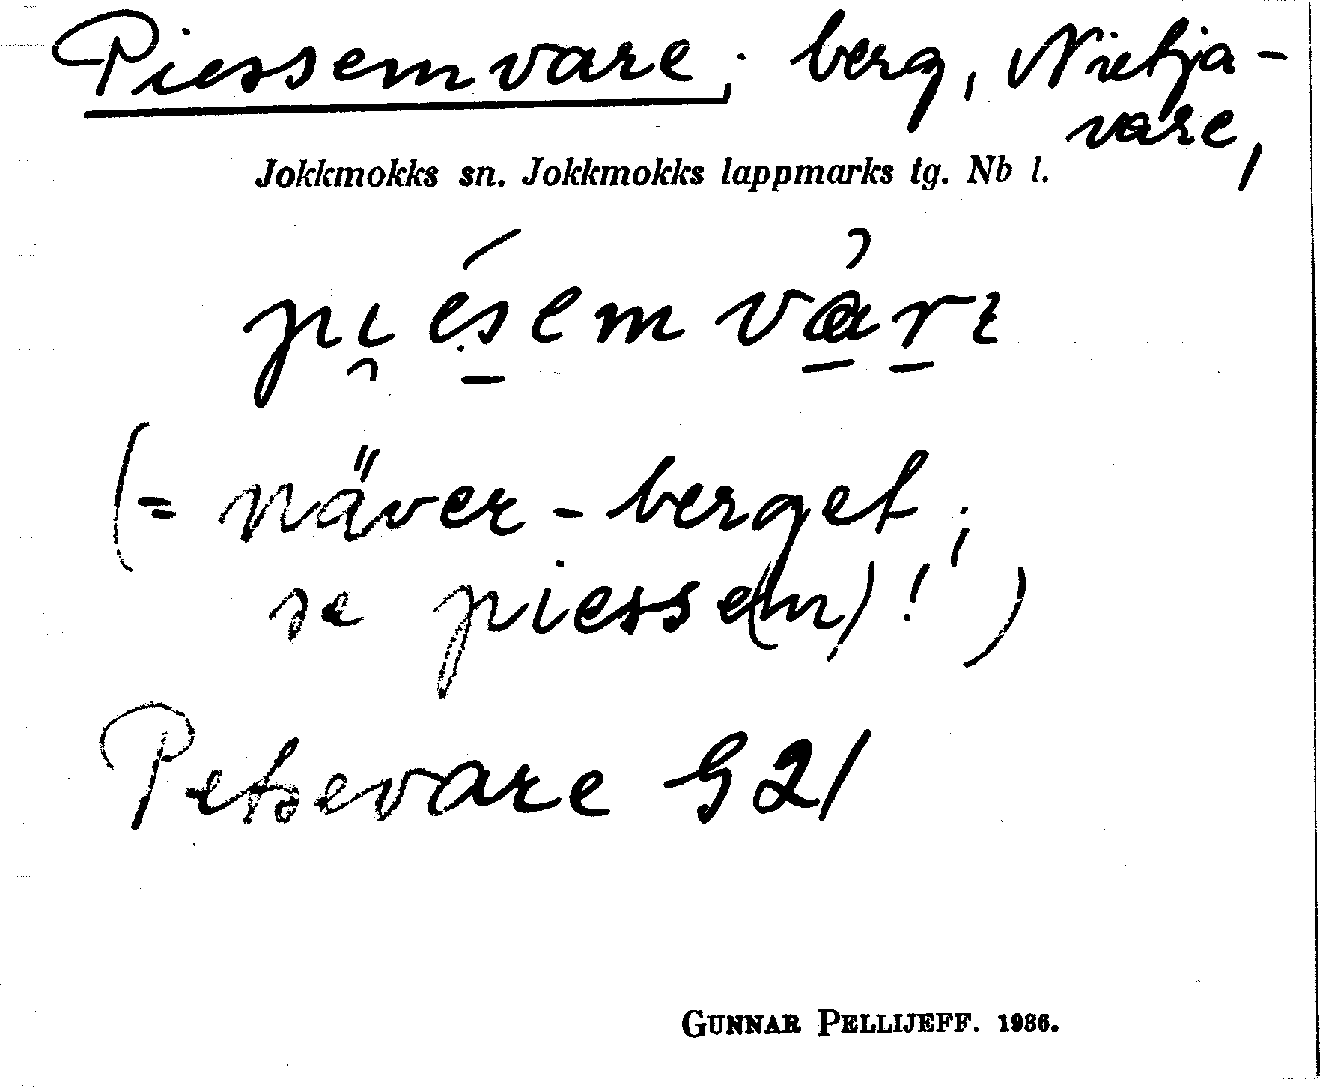 Piessemvare; berg, Nietja-
vare,
Jokkmokks sn. Jokkmokks lappmarks tg. Nb l.
pi̯ésem vári
(= näver-berget;
se piesse(m)!)
Petsevare G21
GUNNAR PELLIJEFF. 1936.